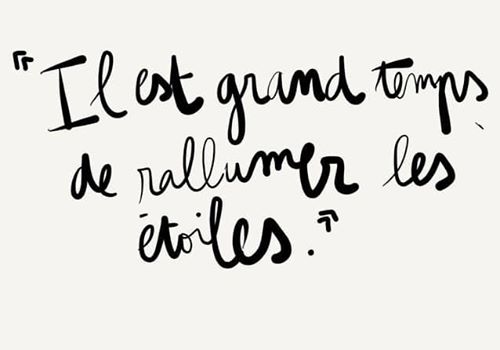 « Il est grand temps
de rallumer les
étoiles. »